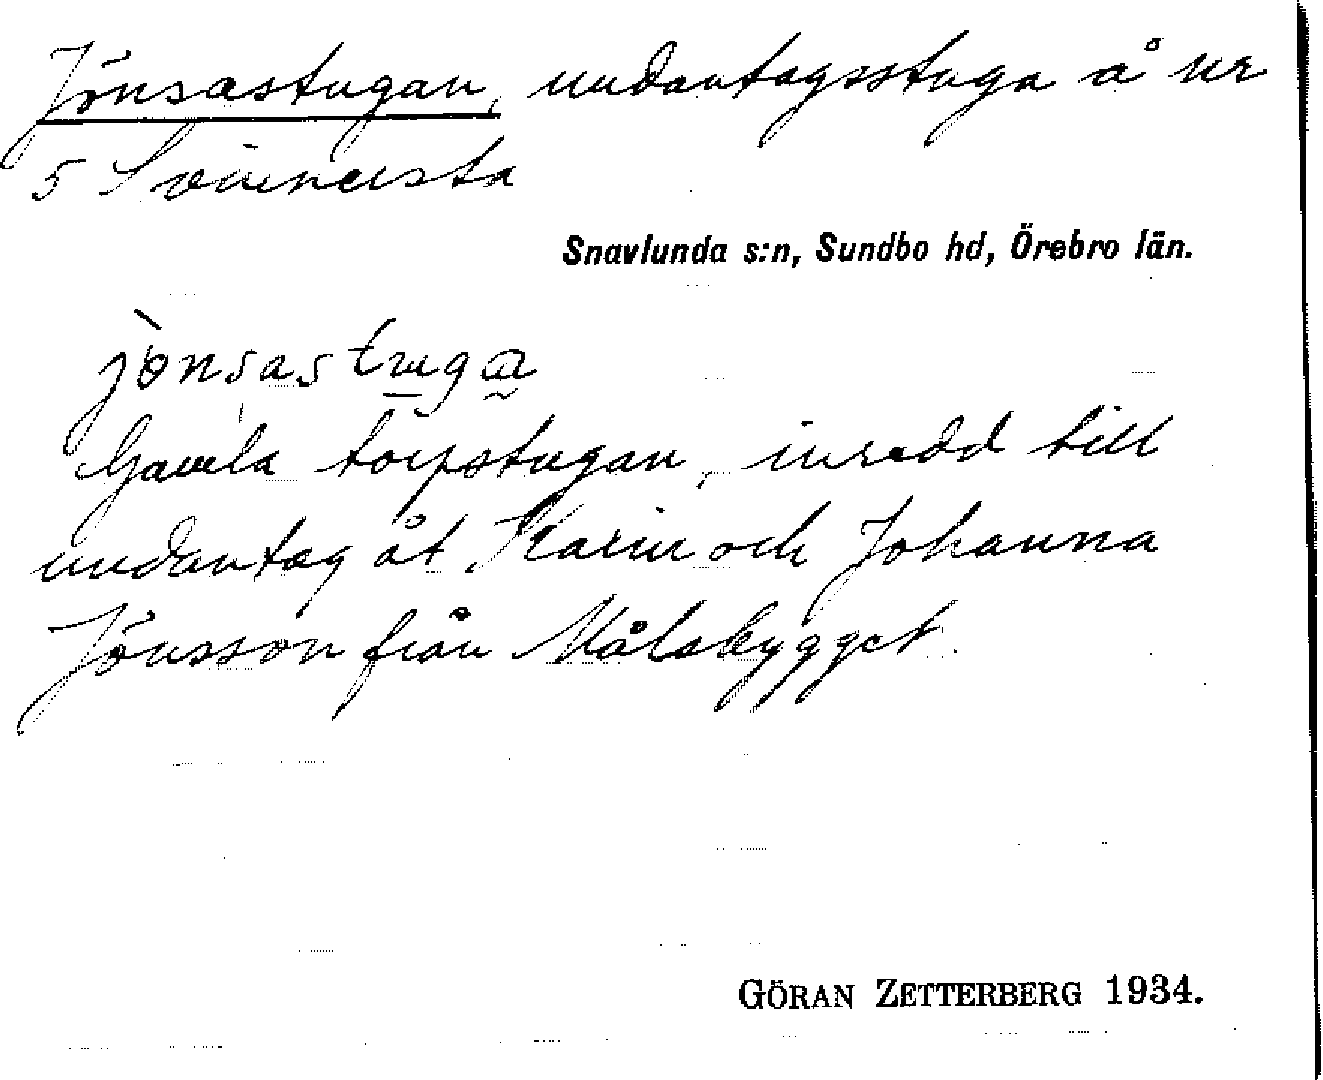 Jönsastugan, undantagsstuga å nr
5 Svinnersta
Snavlunda s:n, Sundbo hd, Örebro län.
jònsastuga
Gamla torpstugan, inredd till
undantag åt Karin och Johanna
Jönsson från Målabygget.
GÖRAN ZETTERBERG 1934.